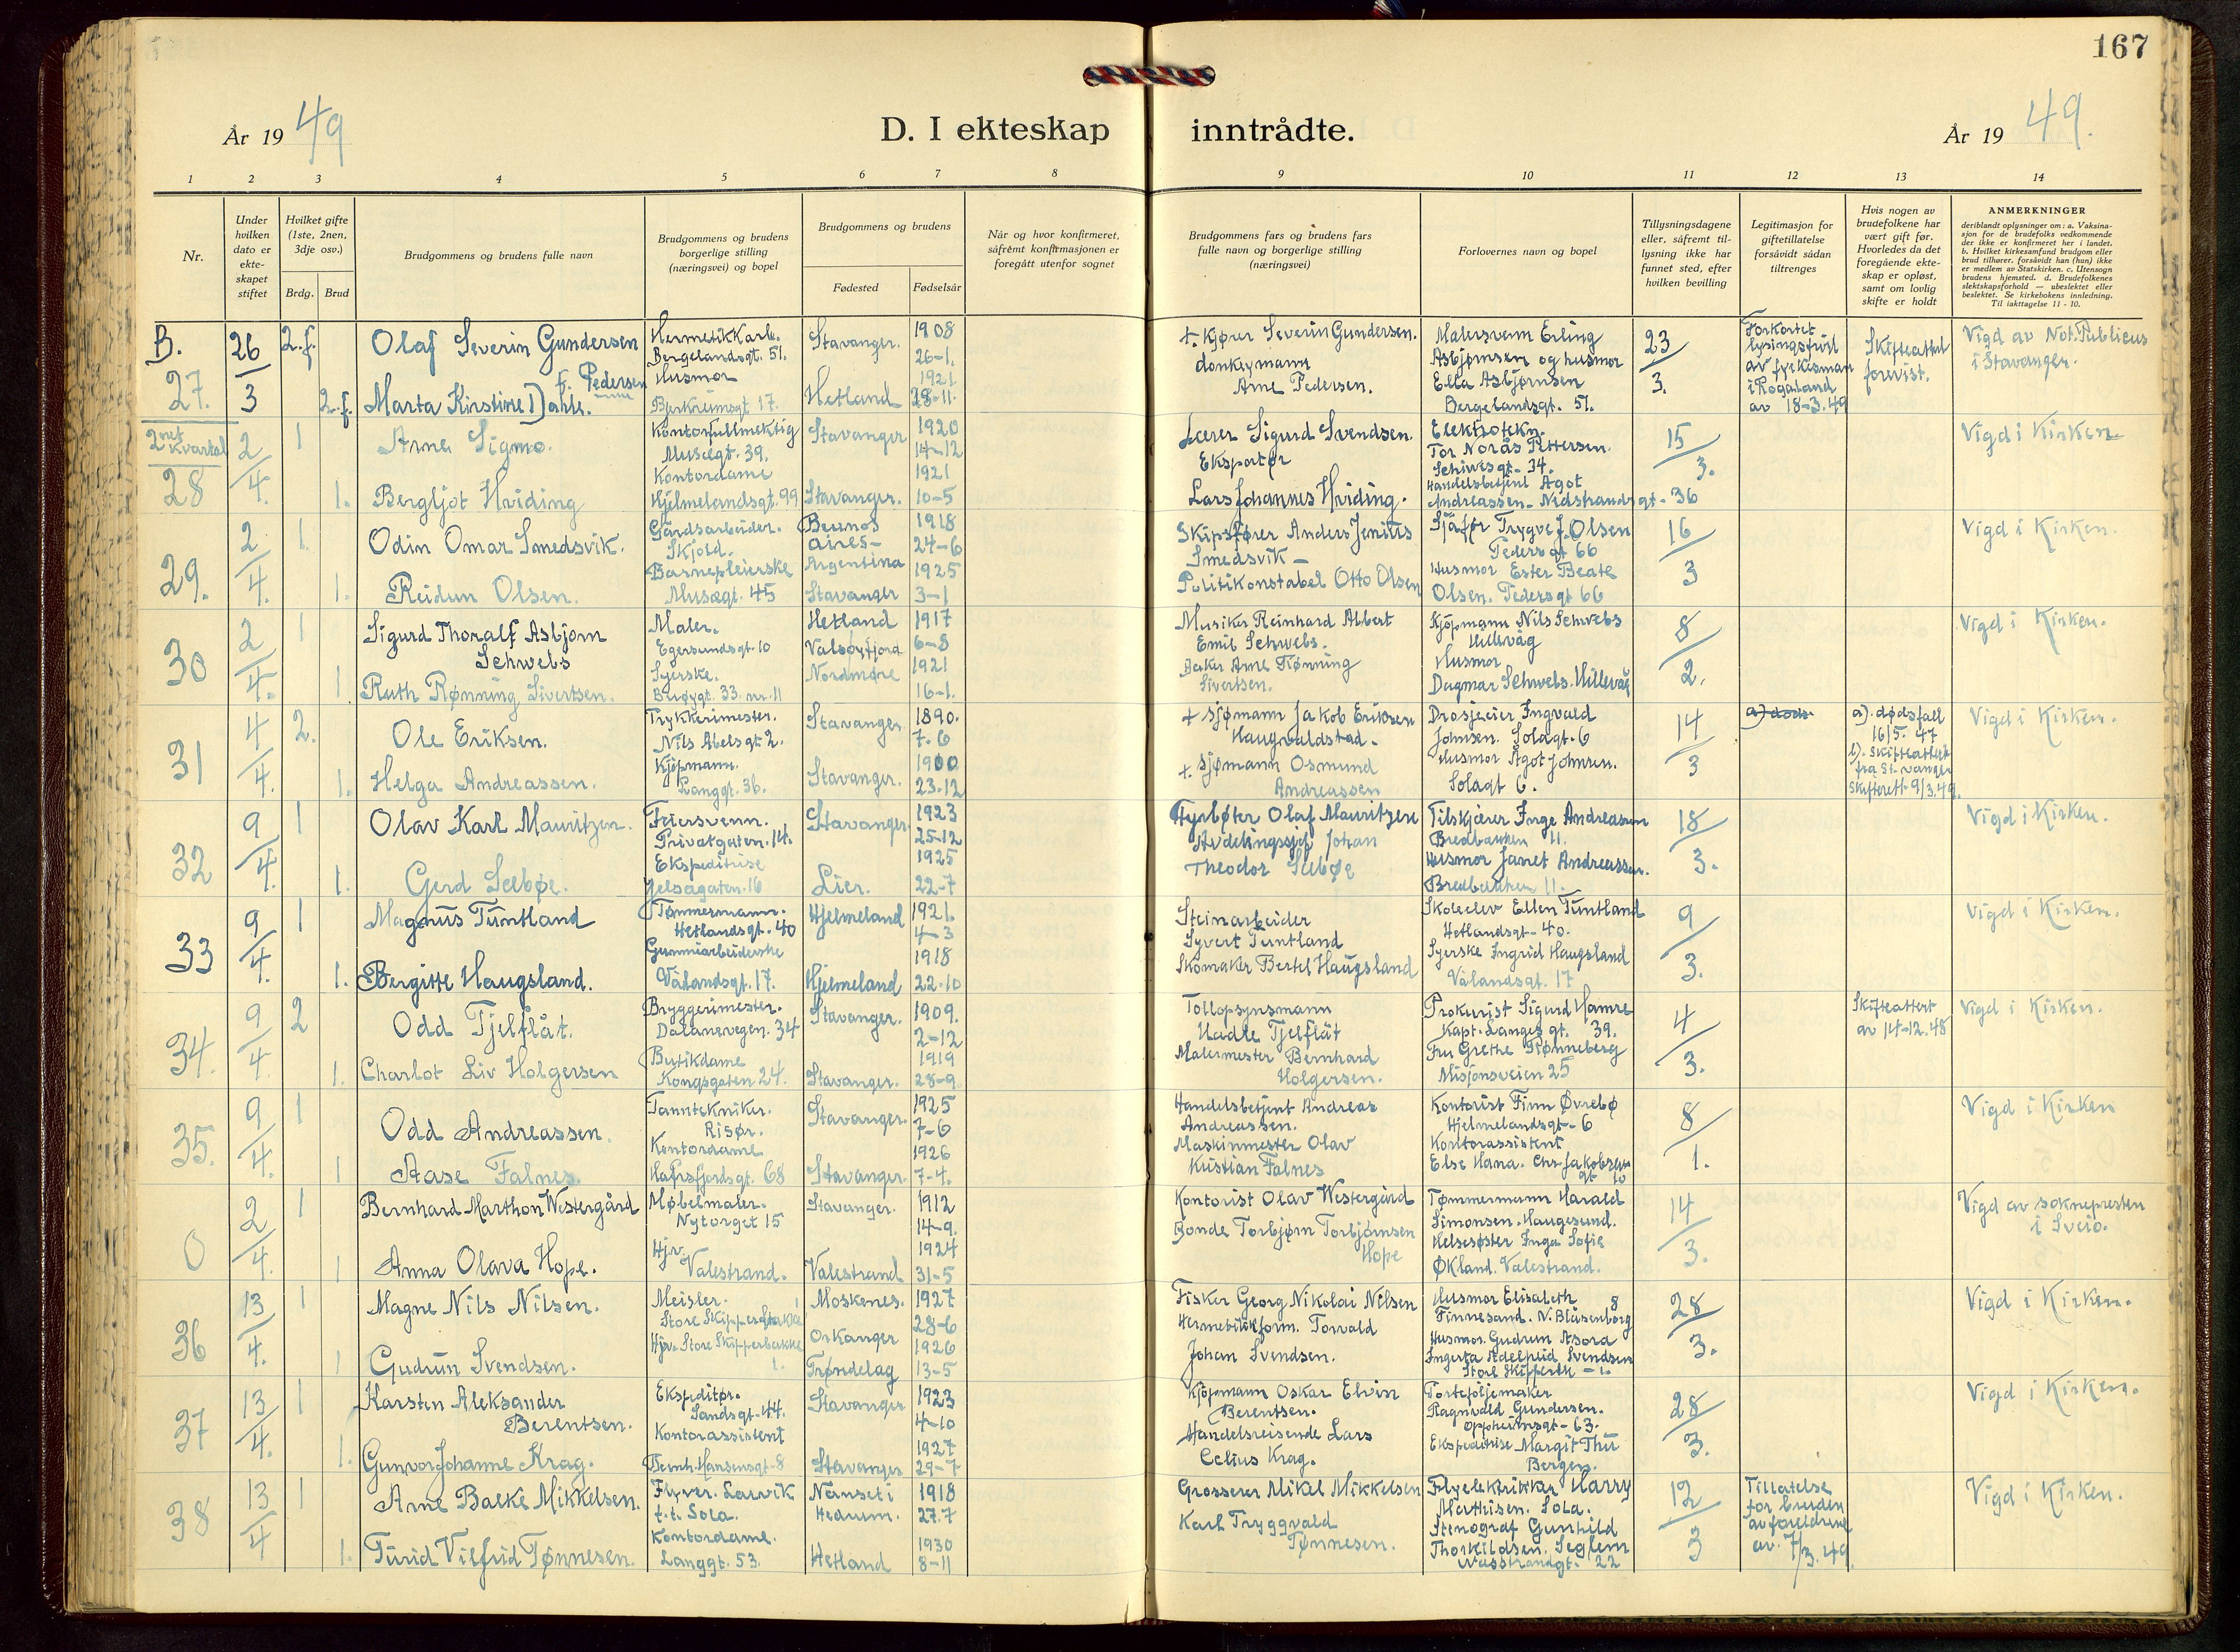 167
År 19 49
D. I ekteskap inntrådte.
År 19 49.
1 2 3 4 5 6 7 8 9 10 11 12 13 14
Nr.
Under hvilken dato er ekteskapet stiftet
Hvilket gifte (1ste, 2nen, 3dje osv.)
Brdg. Brud
Brudgommens og brudens fulle navn
Brudgommens og brudens borgerlige stilling (næringsvei) og bopel
Brudgommens og brudens
Fødested Fødselsår
Når og hvor konfirmeret, såfremt konfirmasjonen er foregått utenfor sognet
Brudgommens fars og brudens fars fulle navn og borgerlige stilling (næringsvei)
Forlovernes navn og bopel
Tillysningsdagene eller, såfremt tillysning ikke har funnet sted, efter hvilken bevilling
Legitimasjon for giftetillatelse forsåvidt sådan tiltrenges
Hvis nogen av brudefolkene har vært gift før. Hvorledes da det foregående ekteskap er opløst, samt om lovlig skifte er holdt
ANMERKNINGER
deriblandt oplysninger om: a. Vaksinasjon for de brudefolks vedkommende der ikke er konfirmeret her i landet. b. Hvilket kirkesamfund brudgom eller brud tilhører, forsåvidt han (hun) ikke er medlem av Statskirken. c. Utensogn brudens hjemsted. d. Brudefolkenes slektskapsforhold — ubeslektet eller beslektet. Se kirkebokens innledning. Til iakttagelse 11 - 10.
B. 27. 26/3 2.f.
Olaf Severin Gundersen
Bergelandsgt. 51.
Stavanger. 1908 26-1.
2.f. f. Pedersen
Marta Kirstine Dahle.
Husmor
Bjerkreimsgt 17.
Hetland 1921 28-11.
+ Kjører Severin Gundersen.
donkeymann
Arne Pedersen.
Malersvenn Erling
Asbjørnsen og husmor
Ella Asbjørnsen
Bergelandsgt. 51.
23/3.
Forkortet
lysingsfrist
av fylkesman
i Rogaland
av 18-3.49
Skifteattest
forevist.
Vigd av Not. Publicus
i Stavanger.
2net Kvartal
28 2/4. 1
Arne Sigmo.
Kontorfullmektig
Muségt. 39.
Stavanger 1920 14-12
1.
Bergljot Hviding
Kontordame
Hjelmelandsgt. 99
Stavanger. 1921 10-5
Lærer Sigurd Svendsen.
Eksportør
Lars Johannes Hviding.
Elektrotekn.
Tor Norås Pettersen.
Schiwesgt. 34.
Handelsbetjent Agot
Andreassen - Nedstrandsgt - 36
15/3.
Vigd i Kirken.
29. 2/4. 1.
Odin Omar Smedsvik.
Gårdsarbeider.
Skjold.
Buenos
Aires -
Argentina
1918 24-6
1.
Reidun Olsen.
Barnepleierske
Muségt. 45
Stavanger 1925 3-1
Skipsfører Anders Jenius
Smedsvik -
Politikonstabel Otto Olsen
Sjåfør Trygve J. Olsen
Pedersgt 66
Husmor Ester Beate
Olsen. Pedersgt 66
16/3
Vigd i Kirken.
30 2/4. 1
Sigurd Thoralf Asbjørn
Schwebs
Maler.
Egersundsgt. 10
Hetland 1917 6-8
1.
Ruth Rønning Sivertsen.
Syerske.
Brøygt. 33. nr. 11
Valsøyfjord
Nordmøre
1921 16-1.
Musiker Reinhard Albert
Emil Schwebs.
Baker Arne Rønning
Sivertsen.
Kjøpmann Nils Schwebs
Hillevåg
Husmor
Dagmar Schwebs. Hillevåg
8/2.
Vigd i Kirken.
31 4/4. 2.
Ole Eriksen.
Trykkerimester.
Nils Abelsgt 2.
Stavanger. 1890. 7-6
1.
Helga Andreassen.
Kjøpmann.
Langgt. 36.
Stavanger. 1900 23-12
+ Sjømann Jakob Eriksen
Haugvaldstad.
+ Sjømann Osmund
Andreassen
Drosjeeier Ingvald
Johnsen. Solagt. 6
Husmor Ågot Johnsen.
Solagt 6.
14/3
a) døds
a). dødsfall
16/5. 47
b). skifteattest
fra Stavanger
skifterett 9/3.49.
Vigd i Kirken.
32 9/4. 1
Olav Karl Mauritzen.
Feiersvenn.
Privatgaten. 14.
Stavanger. 1923 25-12
1.
Gerd Seebøe.
Ekspeditrise
Jelsagaten. 16
Lier. 1925 22-7
Fyrbøter Olaf Mauritzen
Avdelingssjef Johan
Theodor Seebøe
Tilskjærer Inge Andreassen
Bredbakken 11.
Husmor Janet Andreassen.
Bredbakken 11.
18/3.
Vigd i Kirken.
33 9/4. 1
Magnus Tuntland
Tømmermann.
Hetlandsgt. 40
Hjelmeland 1921. 4-3
1.
Bergitte Haugsland.
Gummiarbeiderske
Vålandsgt. 17.
Hjelmeland 1918 22-10
Steinarbeider
Syvert Tuntland
Skomaker Bertel Haugsland
Skoleelev Ellen Tuntland
Hetlandsgt - 40.
Syerske Ingrid Haugsland
Vålandsgt. 17
9/3.
Vigd i Kirken.
34. 9/4. 2
Odd Tjelflåt.
Bryggerimester.
Dalaneveien. 34
Stavanger. 1909. 2-12
1.
Charlot Liv Holgersen
Butikdame
Kongsgaten 24.
Stavanger. 1919 28-9
Tollopsynsmann
Hadle Tjelflåt
Malermester Bernhard
Holgersen.
Prokurist Sigurd Hamre
Kapt. Langes gt. 39.
Fru Grethe Rønneberg
Misjonsveien 25
4/3.
Skifteattest
av 14-12.48
Vigd i Kirken.
35. 9/4. 1
Odd Andreassen.
Tanntekniker.
Risør.
Stavanger. 1925 7-6
1
Aase Falnes.
Kontordame
Hafrsfjordsgt. 68
Stavanger. 1926 7-4.
Handelsbetjent Andreas
Andreassen.
Maskinmester Olav
Kristian Falnes
Kontorist Finn Øvrebø
Hjelmelandsgt - 6
Kontorassistent
Else Hana. Chr. Jakobsens
gt 10
8/1.
Vigd i Kirken
0 2/4. 1
Bernhard Marthon Westergård
Møbelmaler.
Nytorget 15
Stavanger. 1912 14-9.
1
Anna Olava Hope.
Hjv.
Valestrand.
Valestrand 1924 31-5
Kontorist Olav Westergård
Bonde Torbjørn Torbjørnsen
Hope
Tømmermann Harald
Simonsen. Haugesund.
Helsesøster Inga Sofie
Økland. Valestrand.
14/3.
Vigd av soknepresten
i Sveio.
36 13/4. 1
Magne Nils Nilsen.
Meisler.
Store Skipperbakke
Moskenes. 1927 28-6
1
Gudrun Svendsen.
Hjv. Store Skipperbakke
1.
Orkanger
Trøndelag
1926 13-5
Fisker Georg Nikolai Nilsen
Hermetikkform. Torvald
Johan Svendsen.
Husmor Elisabeth
Finnesand. N. Blåsenborg 8
Husmor. Gudrun Asora
Ingerta Adelheid Svendsen
28/3.
Vigd i Kirken.
37 13/4. 1
Karsten Aleksander
Berentsen.
Ekspeditør.
Sandsgt. 44.
Stavanger 1923 4-10
1.
Gunvor Johanne Krag.
Kontorassistent
Bernh. Hansensgt - 8
Stavanger 1927 29-7
Kjøpmann Oskar Elvin
Berentsen.
Handelsreisende Lars
Celius Krag.
Porteføljemaker
Ragnvald Gundersen.
Oppheimsgt - 63.
Ekspeditrise Margit Thu
Bergen.
28/3.
Vigd i Kirken.
38 13/4 1
Arne Balke Mikkelsen.
Flyver. Larvik
t.t. Sola.
Nanset i
Hedrum.
1918 27.7
1.
Turid Vilfrid Tønnesen.
Kontordame.
Langgt. 53.
Hetland 1930 8-11
Grosserer Mikel Mikkelsen
Karl Tryggvald
Tønnesen.
Flyelektriker Harry
Mathisen. Sola.
Stenograf Gunhild
Thorkildsen. Seglem
22
12/3
Tillatelse
for bruden
av foreldrene
av. 7/3.49.
Vigd i Kirken.